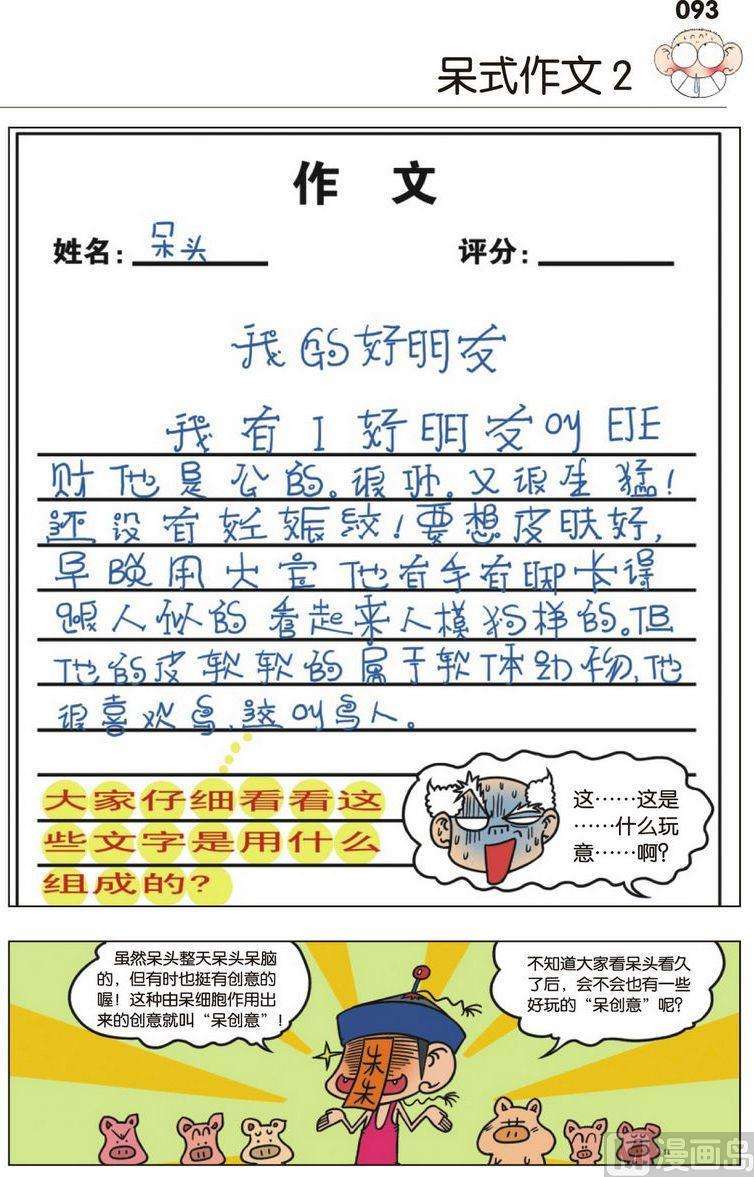 093
呆式作文2
作 文
姓名：呆头 评分：
我的好朋友
我有1好朋友叫EJE
财他是公的。很帅。又很生猛！
还没有女妊娠纹！要想皮肤好，
早晚用大宝 他有手有脚长得
跟人似的看起来人模狗样的。但
他的皮软软的属于软体动物，他
很喜欢鸟，这叫鸟人。
大家仔细看看这
些文字是用什么
组成的？
这……这是
……什么玩
意……啊？
虽然呆头整天呆头呆脑
的，但有时也挺有创意的
喔！这种由呆细胞作用出
来的创意就叫“呆创意”！
不知道大家看呆头看久
了后，会不会也有一些
好玩的“呆创意”呢？
朱
朱
漫画岛